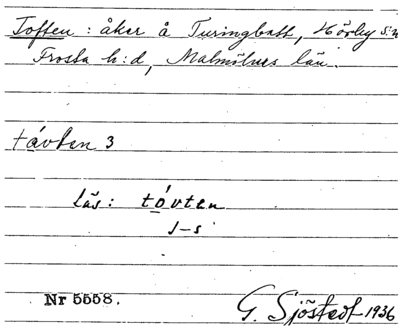 Toften : åker å Turingbatt, Hörby s:n
Frosta h:d, Malmöhus län.
távten 3
läs: tóvten
J-s
Nr 5558.
G. Sjöstedt 1936